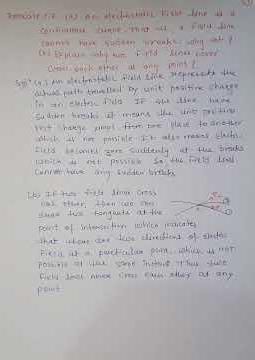 (a) An electrostatic field line is a
continuous curve. That is, a field line
cannot have sudden breaks. Why not?
(b) Explain why two field lines never
cross each other at any point?
(a) An electrostatic field line represents the
actual path travelled by unit positive charge
in an electric field. If the line have
sudden breaks it means the unit positive
test charge jumps from one place to another
which is not possible. It also means electric
field becomes zero suddenly at the breaks
which is not possible. So the field lines
cannot have any sudden breaks.
(b) If two field lines cross
each other, then we can
draw two tangents at the
point of intersection which indicates
that there are two directions of electric
field at a particular point, which is not
possible at the same instant. Thus two
field lines never cross each other at any
point